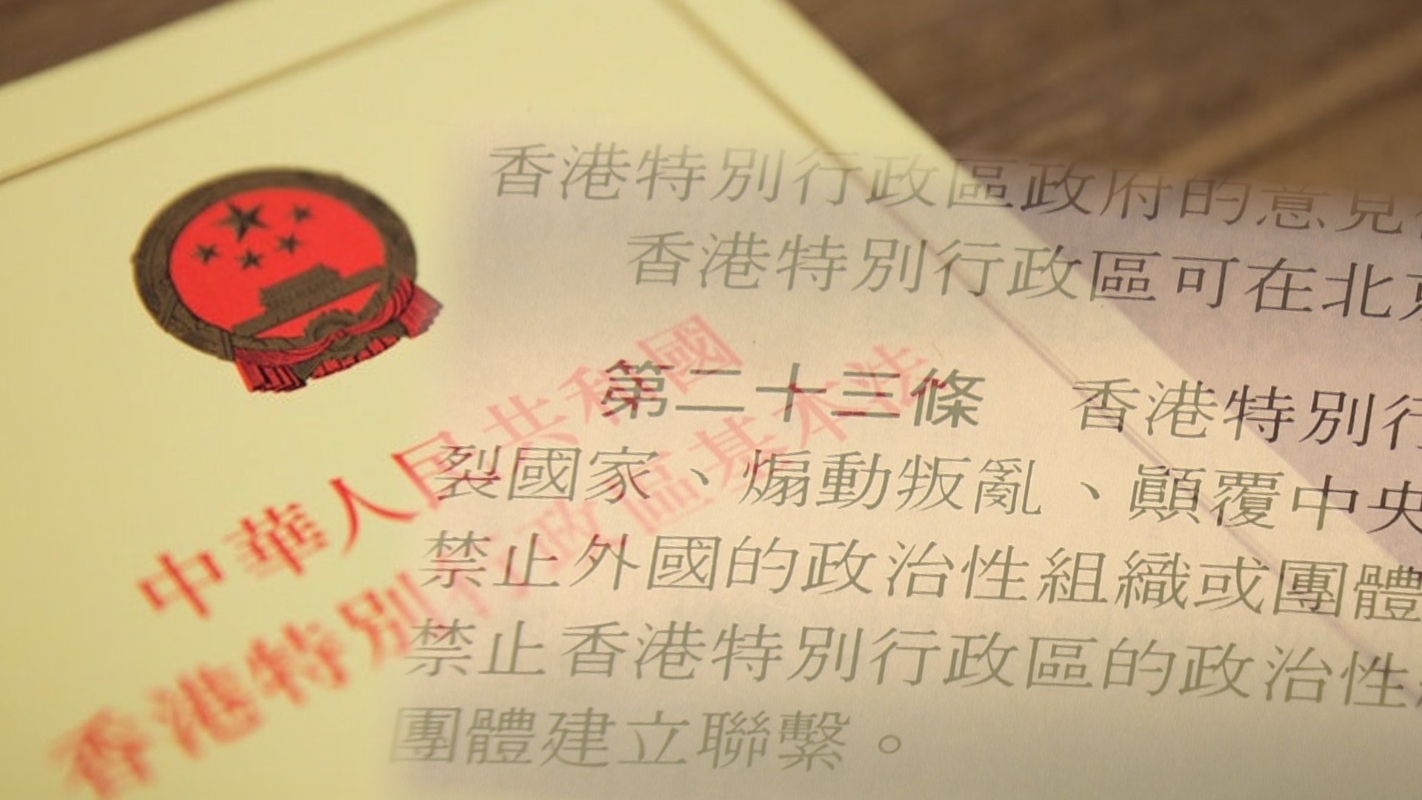 中華人民共和國
香港特別行政區基本法
香港特別行政區政府的意見
香港特別行政區可在北京
第二十三條　香港特別行
裂國家、煽動叛亂、顛覆中央
禁止外國的政治性組織或團體
禁止香港特別行政區的政治性
團體建立聯繫。